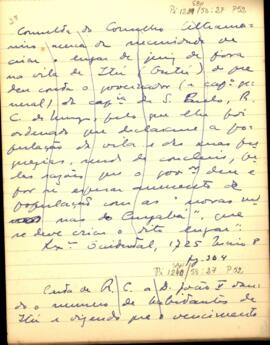 Pi 1211/58:27 P52
Consulta do Conselho Ultrama-
rino acerca da necessidade de
criar o lugar de juiz de fora
na vila de Itú (Outú) de que
deu conta o governador (e capm ge-
neral) da capnia de S. Paulo, R.
C. de pelo que elle foi
ordenado que declarasse a po-
pulação da vila e das suas fre-
guesias, sendo de conclusão, pe-
las razões que o govor deu e
por se esperar aumento de
população com as "novas mi-
nas do Cuyabá", que
se deve criar o dito lugar".
Lxa Occidental, 1725 Junho 8
fg. 304
58:27 P52
Carta de R. C. a D. João V dan-
do o numero de habitantes de
Itú e dizendo que o vencimento